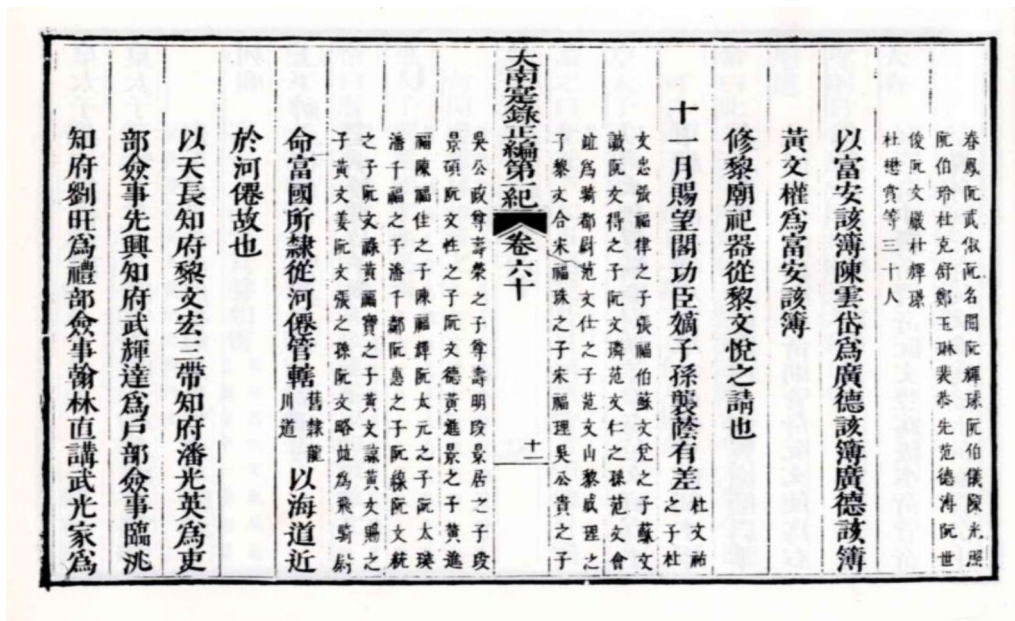 春鳳阮武俶阮名閱阮輝球阮伯儀陳光
阮伯玲杜克舒鄭玉琳裴恭先范德海阮世
俊阮文巖杜輝璟
杜懋賞等三十人
以富安該簿陳雲岱為廣德該簿廣德該簿
黃文權為富安該簿
修黎廟祀器從黎文悅之請也
十一月賜望閣功臣嫡子孫襲蔭有差
杜文祐
之子杜
文忠張福律之子張福伯蘇文兌之子蘇文
讖阮文得之子阮文璘范文仁之孫范文會
為騎都尉范文仕之子范文山黎威理之
子黎文合宋福珠之子宋福理吳公貴之子
大南寔錄正編第二紀
卷六十
十二
吳公政尊壽榮之子尊壽明段景居之子段
景碩阮文性之子阮文德黃進景之子黃進
福陳福佳之子陳福鐸阮太元之子阮太瑛
潘千福之子潘千都阮惠之子阮線阮文統
之子阮文祿黃福寶之子黃文諒黃文賜之
子黃文姜阮文張之孫阮文略並為飛騎尉
命富國所隸從河僊管轄
舊隸龍
川道
以海道近
於河僊故也
以天長知府黎文宏三帶知府潘光英為吏
部僉事先興知府武輝達為戶部僉事臨洮
知府劉旺為禮部僉事翰林直講武光家為